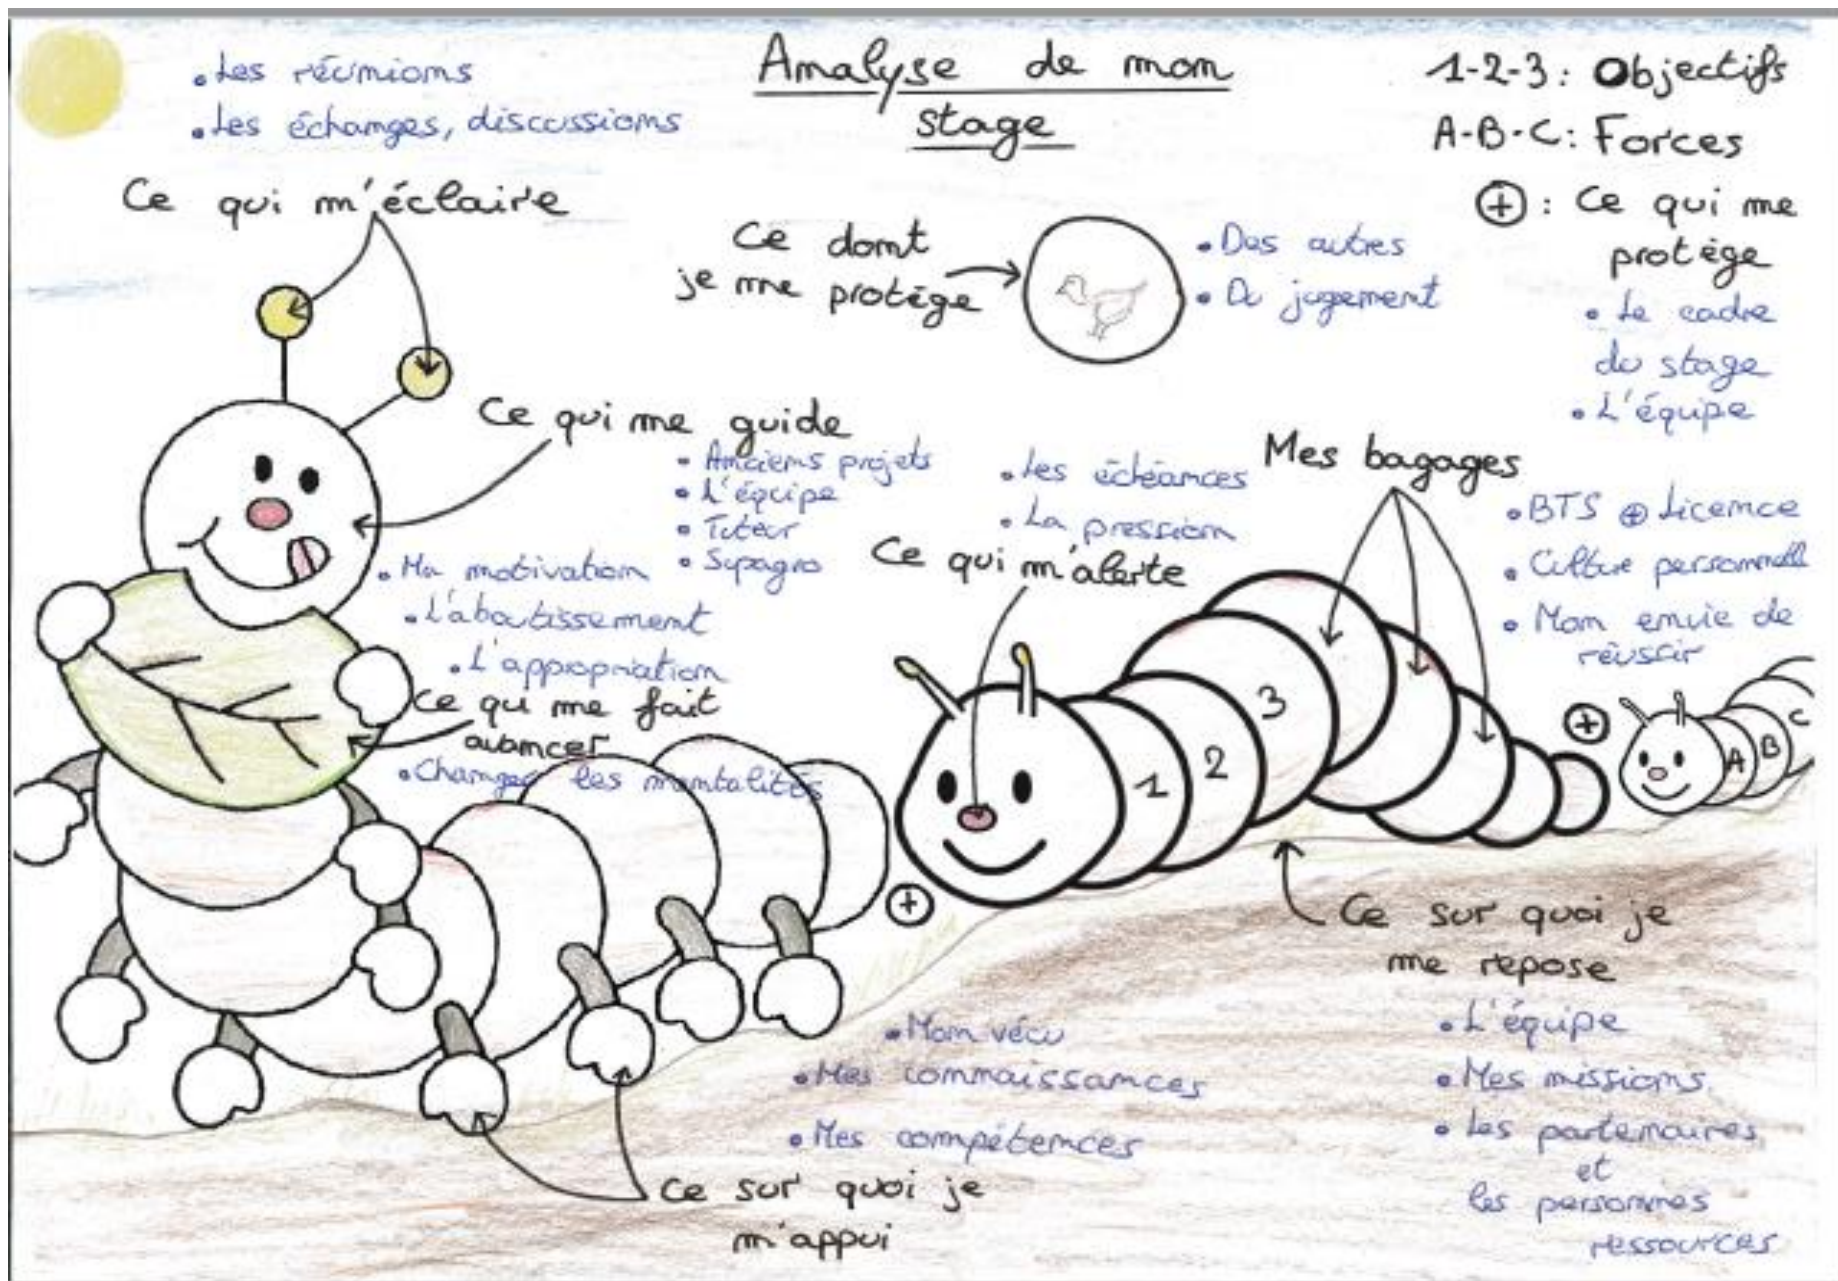 Analyse de mon
stage
• Les réunions
• Les échanges, discussions
Ce qui m'éclaire
1-2-3: Objectifs
A-B-C: Forces
⊕: Ce qui me
protège
• Le cadre
du stage
• L'équipe
Ce dont
je me protège
• Des autres
• Du jugement
Ce qui me guide
• Anciens projets
• L'équipe
• Tuteur
• Supagro
• Les échéances
• La pression
Ce qui m'alerte
Mes bagages
• BTS ⊕ Licence
• Culture personnelle
• Mon envie de
réussir
• Ma motivation
• L'aboutissement
• L'appropriation
Ce qui me fait
avancer
• Changer les mentalités
1
2
3
⊕
A
B
C
⊕
Ce sur quoi je
me repose
• L'équipe
• Mes missions
• Les partenaires
et
les personnes
ressources
• Mon vécu
• Mes connaissances
• Mes compétences
Ce sur quoi je
m'appui